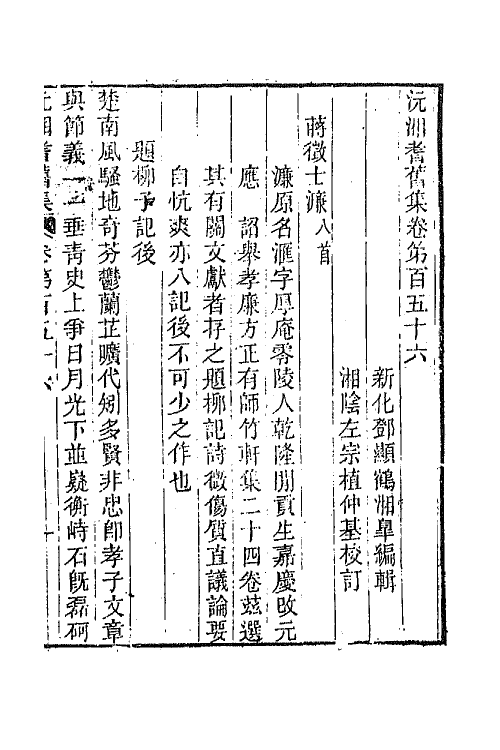 沅湘耆舊集卷第百五十六
新化鄧顯鶴湘臯編輯
湘陰左宗植仲基校訂
蔣徵士濂八首
濂原名滙字厚庵零陵人乾隆閒貢生嘉慶改元
應　詔舉孝廉方正有師竹軒集二十四卷茲選
其有關文獻者存之題柳記詩微傷質直議論要
自忼爽亦八記後不可少之作也
題柳子記後
楚南風騷地奇芬鬱蘭芷曠代矧多賢非忠卽孝子文章
與節義一一垂靑史上爭日月光下並疑衡峙石旣磊砢
沅湘耆舊集 卷第百五十六 一